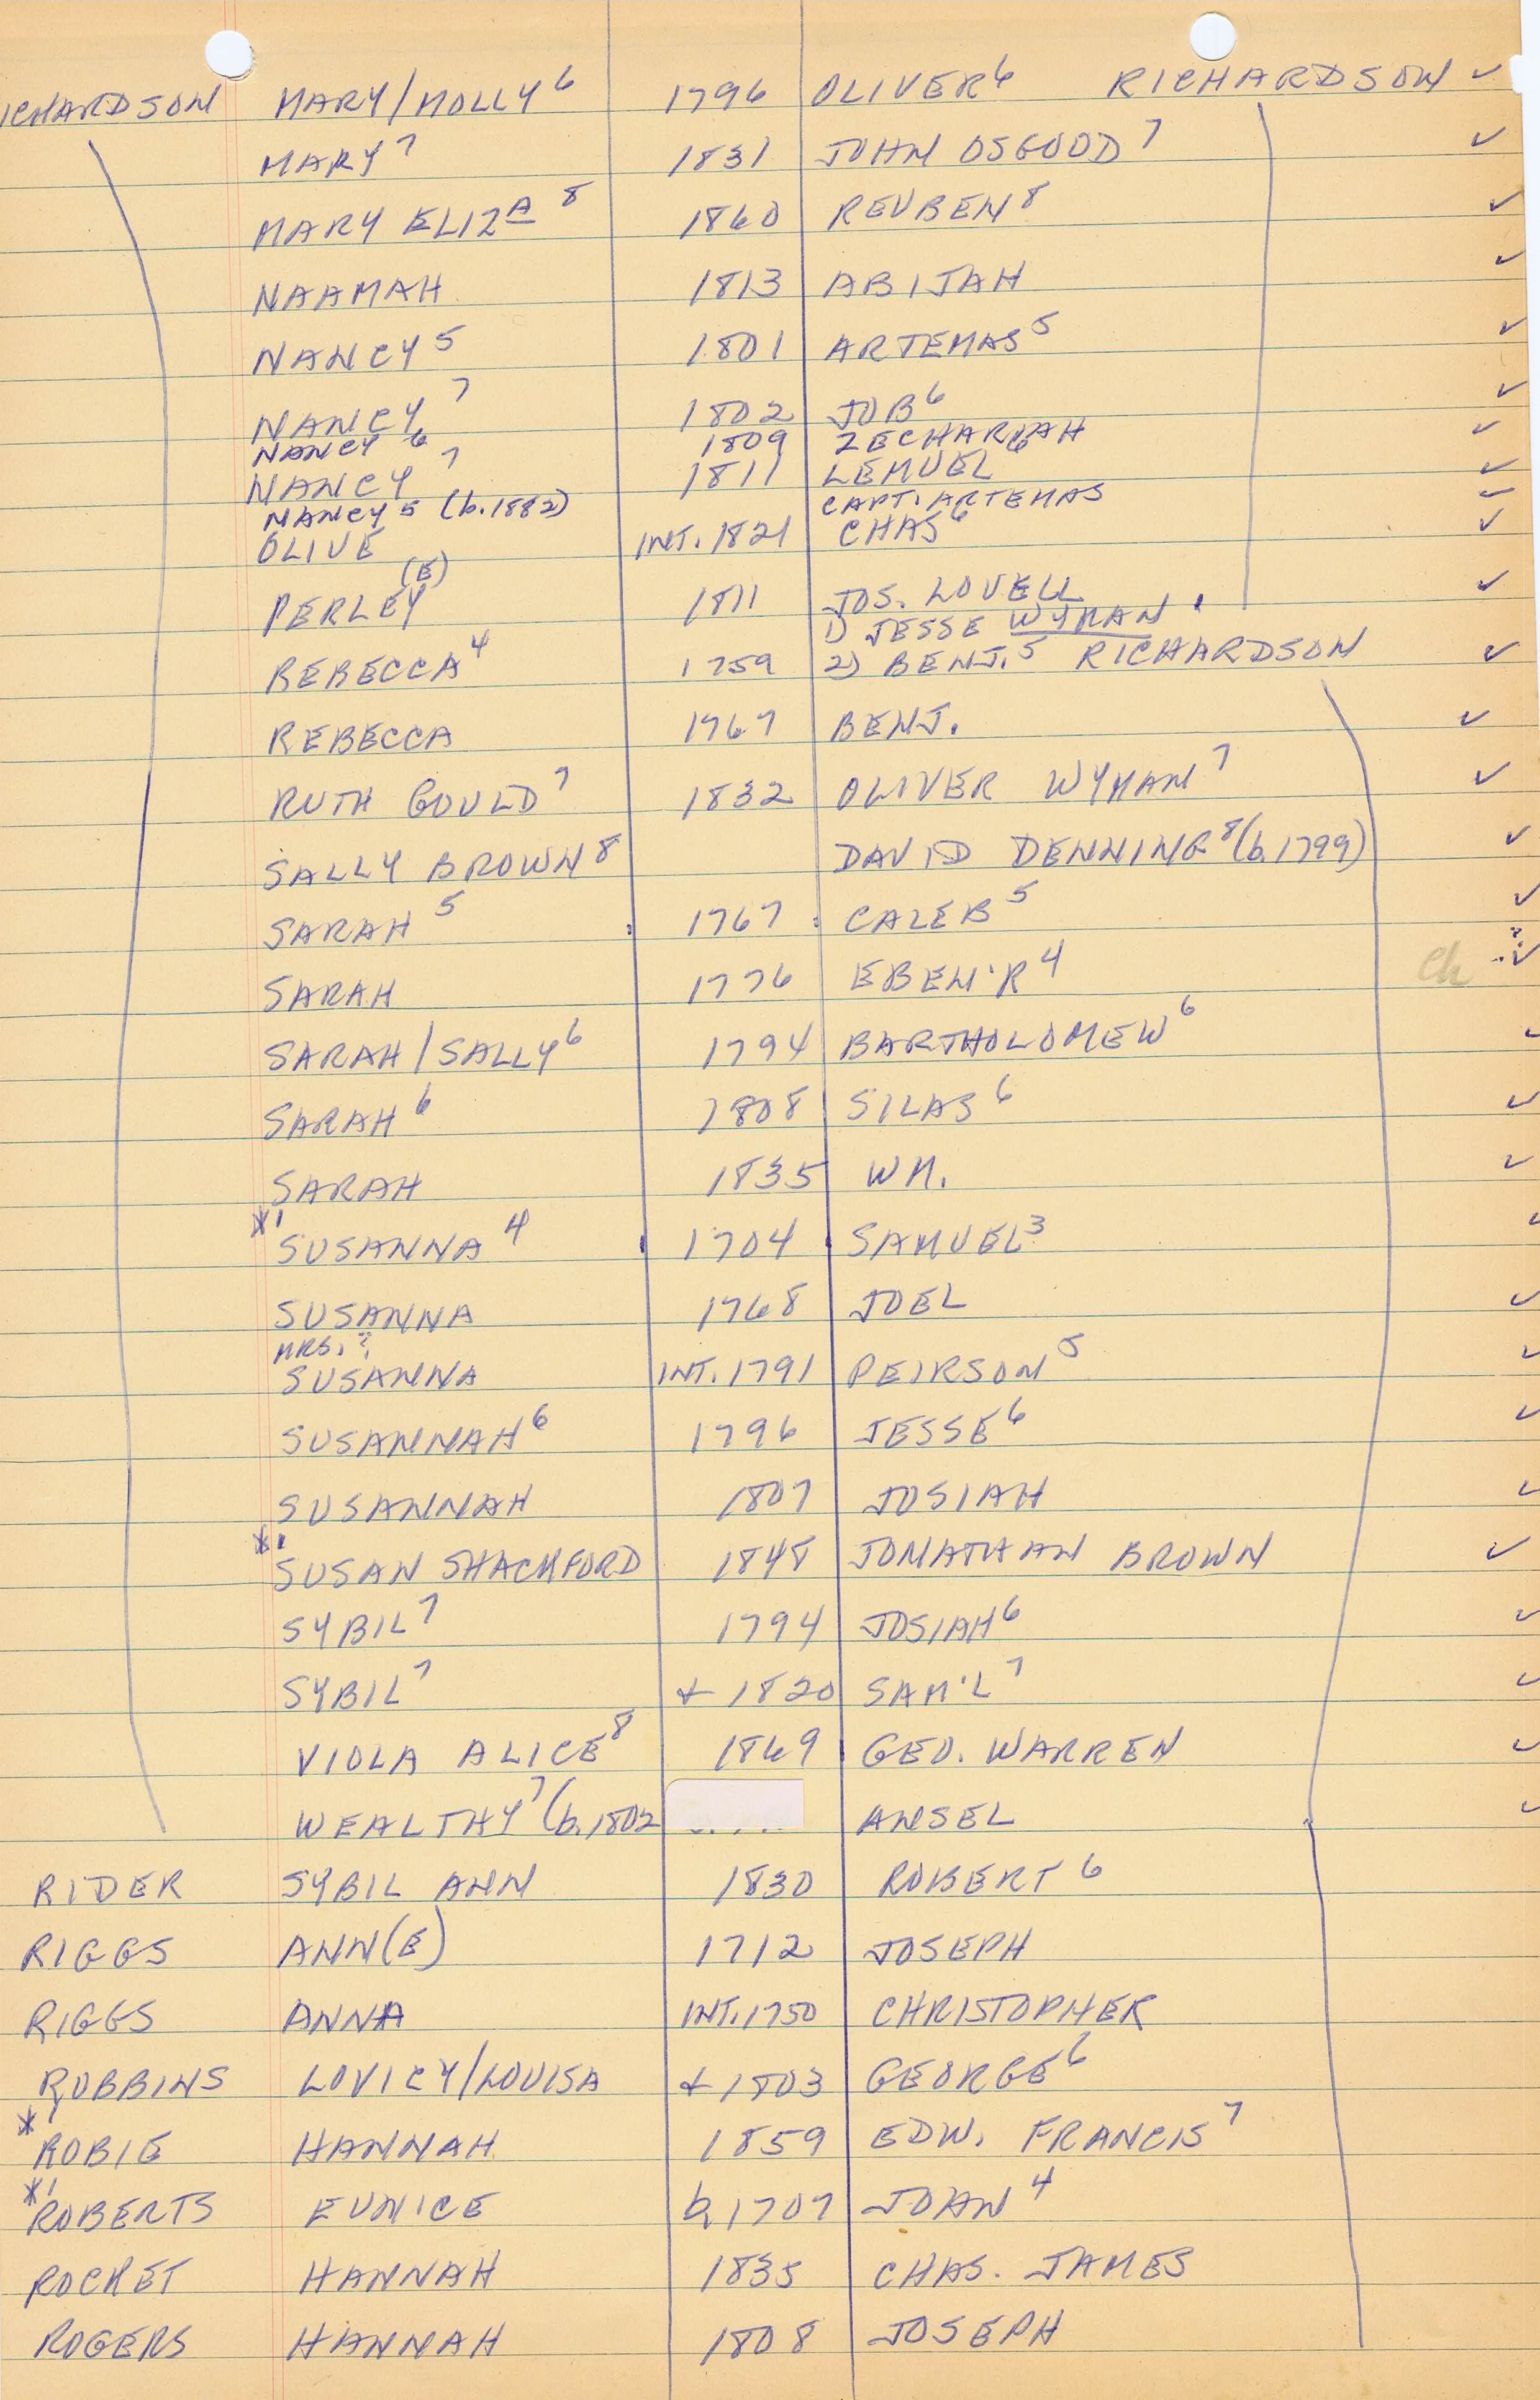 ICHARDSON MARY/MOLLY⁶ 1796 OLIVER⁶ RICHARDSON ✓
MARY⁷ 1831 JOHN OSGOOD⁷ ✓
MARY ELIZA⁸ 1860 REUBEN⁸ ✓
NAAMAH 1813 ABIJAH ✓
NANCY⁵ 1801 ARTEMAS⁵ ✓
NANCY⁷ 1802 JOB⁶ ✓
NANCY⁶ 1809 ZECHARIAH ✓
NANCY⁷ 1811 LEMUEL⁶ ✓
NANCY⁵ (b.1882) CAPT. ARTEMAS ✓
OLIVE INT. 1821 CHAS⁶ ✓
PERLEY (E) 1811 JOS. LOVELL ✓
1) JESSE WYMAN
REBECCA⁴ 1759 2) BENJ.⁵ RICHARDSON ✓
REBECCA 1767 BENJ. ✓
RUTH GOULD⁷ 1832 OLIVER WYMAN⁷ ✓
SALLY BROWN⁸ DAVID DENNING⁸ (b.1799) ✓
SARAH⁵ 1767 CALEB⁵ ✓
SARAH 1776 EBEN'R⁴ ch ✓
SARAH/SALLY⁶ 1794 BARTHOLOMEW⁶ ✓
SARAH⁶ 1808 SILAS⁶ ✓
SARAH 1835 WM. ✓
*SUSANNA⁴ 1704 SAMUEL³ ✓
SUSANNA 1768 JOEL ✓
MRS. ?
SUSANNA INT. 1791 PEIRSON⁵ ✓
SUSANNAH⁶ 1796 JESSE⁶ ✓
SUSANNAH 1807 JOSIAH ✓
*SUSAN SHACKFORD 1848 JONATHAN BROWN ✓
SYBIL⁷ 1794 JOSIAH⁶ ✓
SYBIL⁷ + 1820 SAM'L⁷ ✓
VIOLA ALICE⁸ 1869 GEO. WARREN ✓
WEALTHY⁷ (b.1802 ANSEL ✓
RIDER SYBIL ANN 1830 ROBERT⁶
RIGGS ANN(E) 1712 JOSEPH
RIGGS ANNA INT. 1750 CHRISTOPHER
ROBBINS LOVICY/LOUISA + 1803 GEORGE⁶
*ROBIE HANNAH 1859 EDW. FRANCIS⁷
*ROBERTS EUNICE b.1707 JOHN⁴
ROCKET HANNAH 1835 CHAS. JAMES
ROGERS HANNAH 1808 JOSEPH